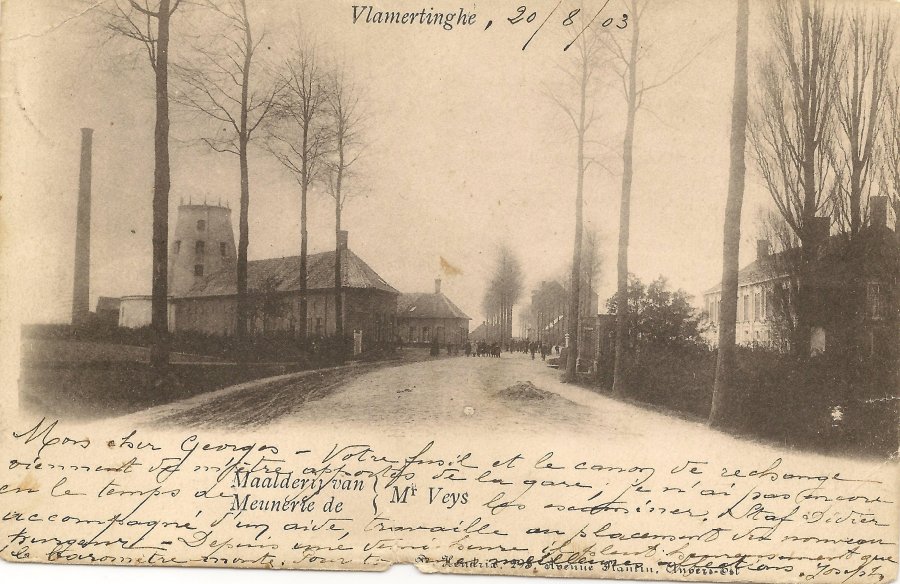 Vlamertinghe , 20/8/03
Mon cher Georges - Votre fusil et le canon de rechange
viennent de m'être apportés de la gare; je n'ai pas encore
Maalderij van
Meunerie de
Mr Veys
eu le temps de les examiner. Staf Didier
accompagné d'un aide, travaille au placement du nouveau
- Depuis une demi heure il pleut heureusement que
le baromètre monte. meilleures affections. Joseph
Hendrix, Avenue Plantin, Anvers-Est